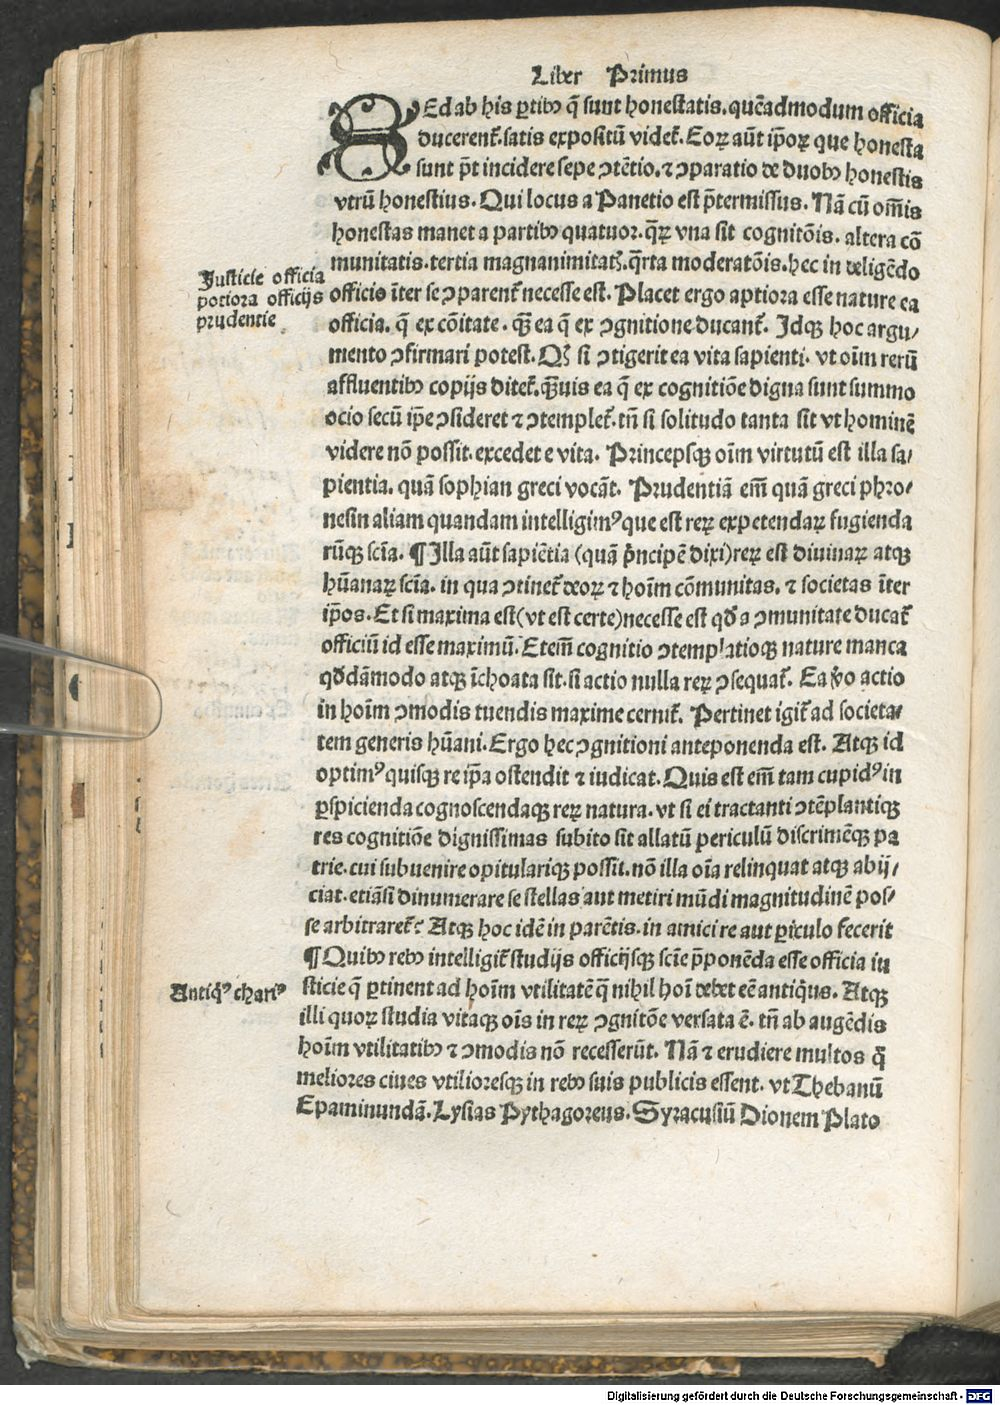 Liber Primus
SEd ab his ꝑtibꝫ q̄ sunt honestatis. quēadmodum officia
ducerent᷑. satis expositū videt᷑. Eoꝝ aūt ip̄oꝝ que honesta
sunt p̄t incidere sepe ꝯtētio. ⁊ ꝯparatio de duobꝫ honestis
vtrū honestius. Qui locus a Panetio est p̄termissus. Nā cū om̄is
honestas manet a partibꝫ quatuor. q̄ꝝ vna sit cognitōis. altera cō
munitatis. tertia magnanimitat. q̄rta moderatōis. hec in deligēdo
Justicie officia
potiora officijs
prudentie
officio īter se ꝯparent᷑ necesse est. Placet ergo aptiora esse nature ea
officia. q̄ ex cōitate. qꝫ ea q̄ ex ꝯgnitione ducant᷑. Idqꝫ hoc argu/
mento ꝯfirmari potest. Qꝫ si ꝯtigerit ea vita sapienti. vt oīm rerū
affluentibꝫ copijs ditet᷑. qꝫuis ea q̄ ex cognitiōe digna sunt summo
ocio secū ip̄e ꝯsideret ⁊ ꝯtemplet᷑. tn̄ si solitudo tanta sit vt hominē
videre nō possit. excedet e vita. Princepsqꝫ oīm virtutū est illa sa/
pientia. quā sophian greci vocāt. Prudentiā em̄ quā greci phro/
nesin aliam quandam intelligimꝰ que est reꝝ expetendaꝝ fugienda
rūqꝫ scīa. ¶ Illa aūt sapiētia (quā p̄ncipē dixi) reꝝ est diuinaꝝ atqꝫ
hūanaꝝ scīa. in qua ꝯtinet᷑ deoꝝ ⁊ hoīm cōmunitas. ⁊ societas īter
ip̄os. Et si maxima est (vt est certe) necesse est qd̄ a ꝯmunitate ducat᷑
officiū id esse maximū. Etem̄ cognitio ꝯtemplatioqꝫ nature manca
qd̄āmodo atqꝫ īchoata sit. si actio nulla reꝝ ꝯsequat᷑. Ea v̊o actio
in hoīm ꝯmodis tuendis maxime cernit᷑. Pertinet igit᷑ ad societa/
tem generis hūani. Ergo hec ꝯgnitioni anteponenda est. Atqꝫ id
optimꝰ quisqꝫ re ip̄a ostendit ⁊ iudicat. Quis est em̄ tam cupidꝰ in
ꝑspicienda cognoscendaqꝫ reꝝ natura. vt si ei tractanti ꝯtēplantiqꝫ
res cognitiōe dignissimas subito sit allatū periculū discrimēqꝫ pa
trie. cui subuenire opitulariqꝫ possit. nō illa oīa relinquat atqꝫ abij/
ciat. etiāsi dinumerare se stellas aut metiri mūdi magnitudinē pos/
se arbitraret᷑? Atqꝫ hoc idē in parētis. in amici re aut ꝑiculo fecerit
¶ Quibꝫ rebꝫ intelligit᷑ studijs officijsqꝫ scīe p̄ponēda esse officia iu
Antiqꝰ charꝰ
sticie q̄ ꝑtinent ad hoīm vtilitatē q̄ nihil hoī debet eē antiqͥus. Atqꝫ
illi quoꝝ studia vitaqꝫ oīs in reꝝ ꝯgnitōe versata ē. tn̄ ab augēdis
hoīm vtilitatibꝫ ⁊ ꝯmodis nō recesserūt. Nā ⁊ erudiere multos q̊
meliores ciues vtilioresqꝫ in rebꝫ suis publicis essent. vt Thebanū
Epaminundā. Lysias Pythagoreus. Syracusiū Dionem Plato
Digitalisierung gefördert durch die Deutsche Forschungsgemeinschaft - DFG